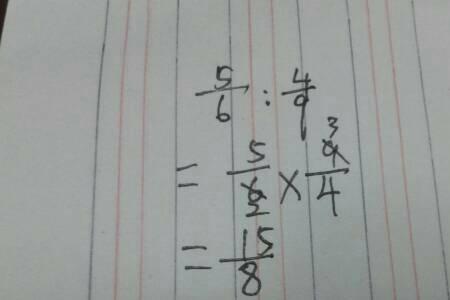 5/6 : 4/9
= 5/6 2 × 9 3/4
= 15/8